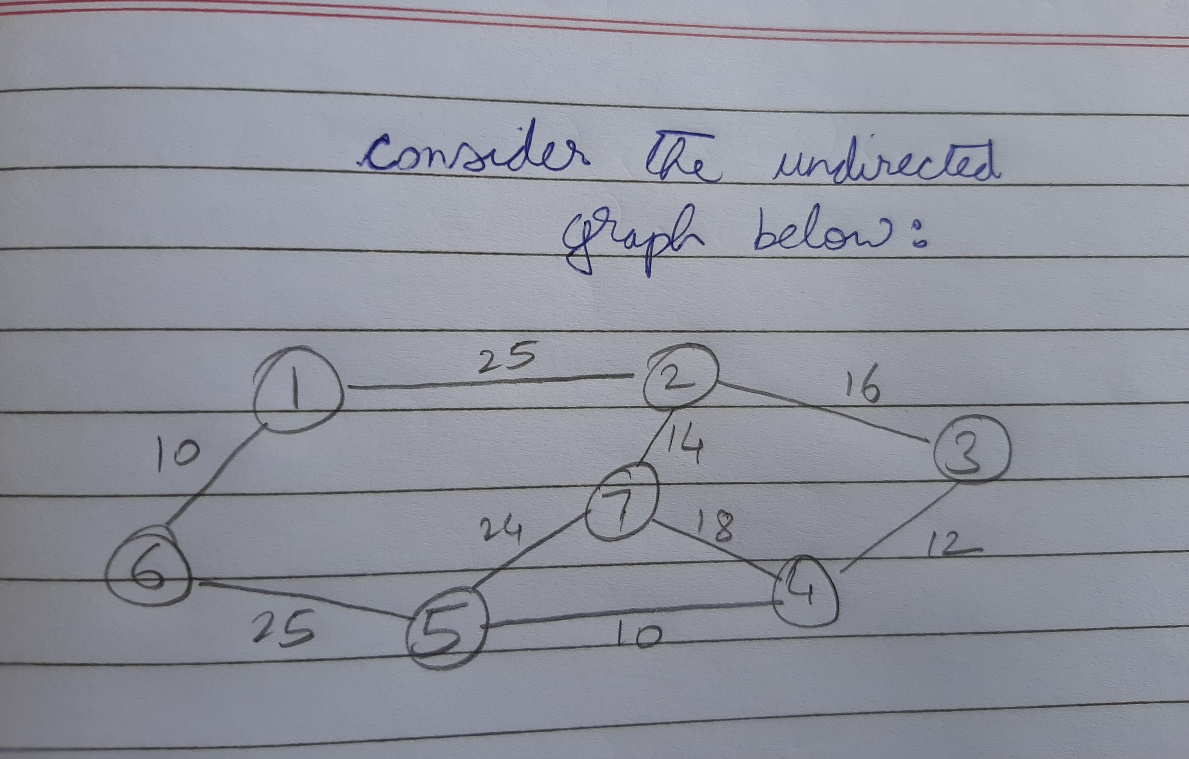 consider the undirected
graph below:
25
1
2
16
10
14
3
7
24
18
12
6
4
25
5
10